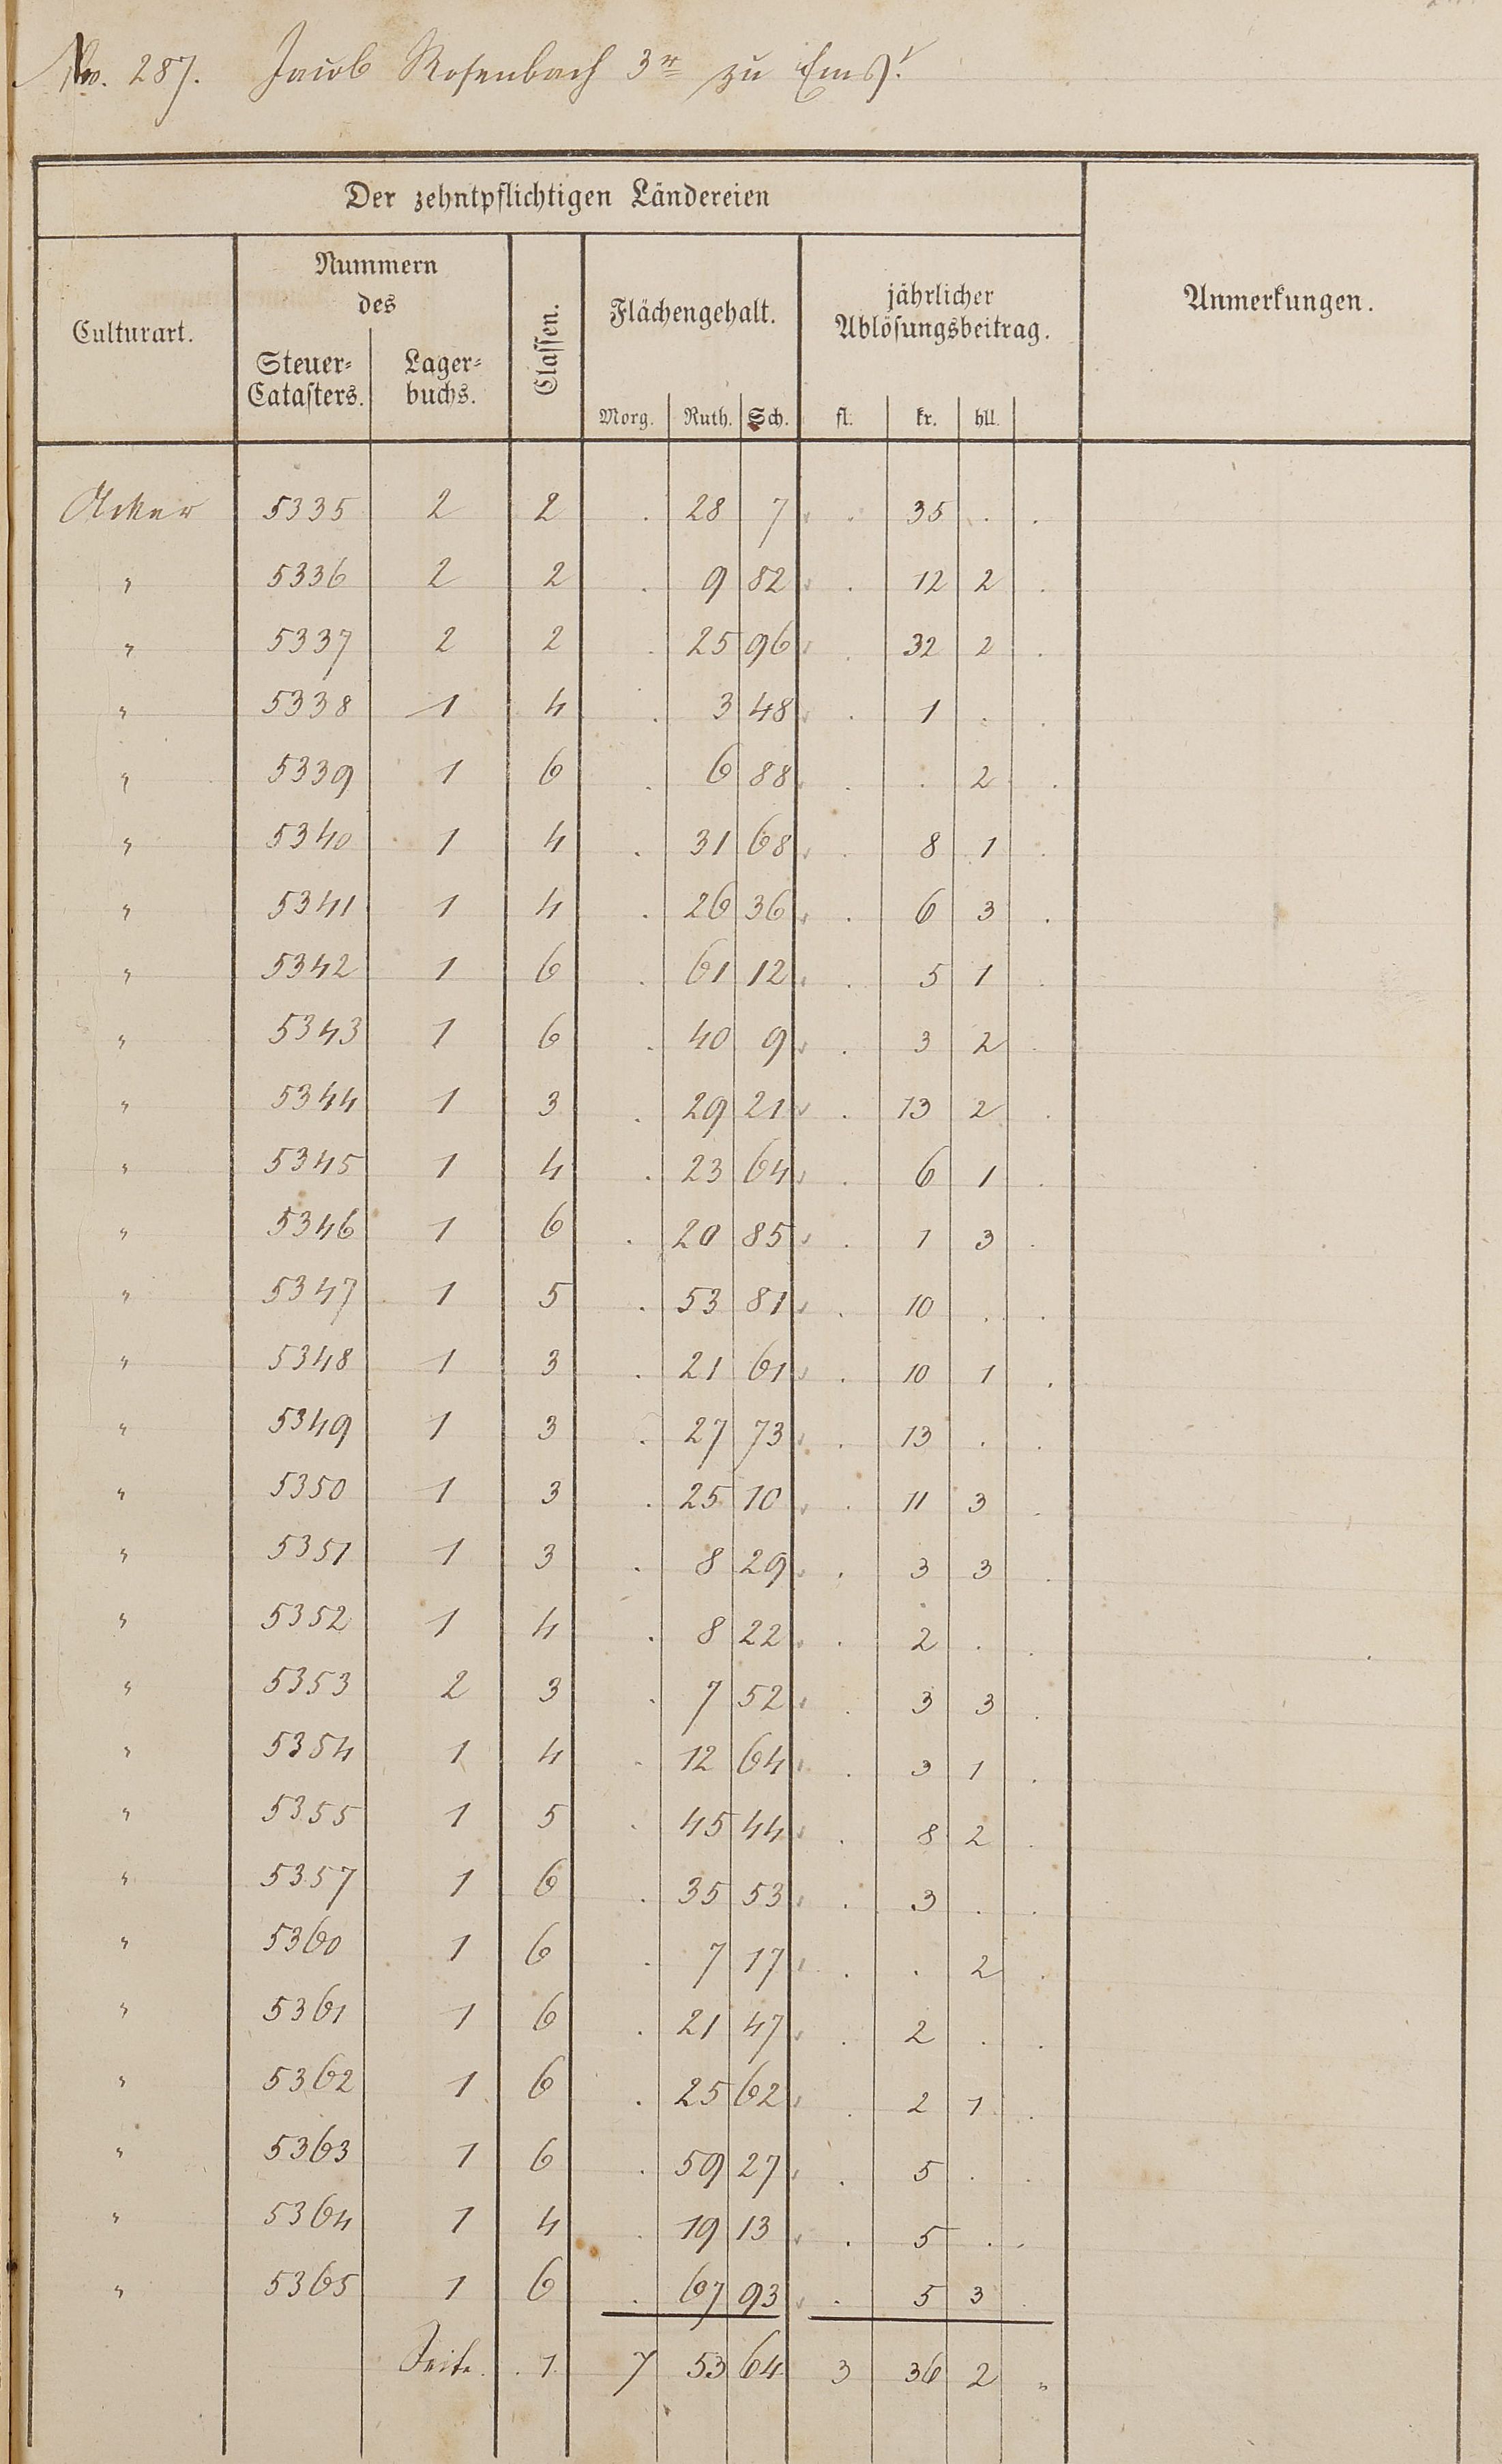 No. 287. Jacob Rosenbach 3r zu Ems.
Der zehntpflichtigen Ländereien
Culturart.
Nummern
des
Steuer-
Catasters.
Lager-
buchs.
Classen.
Flächengehalt.
Morg. Ruth. Sch.
jährlicher
Ablösungsbeitrag.
fl. kr. hll.
Anmerkungen.
Acker 5335 2 2 . 28 7 . 35 . .
" 5336 2 2 . 9 82 . 12 2 .
" 5337 2 2 . 25 96 . 32 2 .
" 5338 1 4 . 3 48 . 1 . .
" 5339 1 6 . 6 88 . . 2 .
" 5340 1 4 . 31 68 . 8 1 .
" 5341 1 4 . 26 36 . 6 3 .
" 5342 1 6 . 61 12 . 5 1 .
" 5343 1 6 . 40 9 . 3 2 .
" 5344 1 3 . 29 21 . 13 2 .
" 5345 1 4 . 23 64 . 6 1 .
" 5346 1 6 . 20 85 . 1 3 .
" 5347 1 5 . 53 81 . 10 . .
" 5348 1 3 . 21 61 . 10 1 .
" 5349 1 3 . 27 73 . 13 . .
" 5350 1 3 . 25 10 . 11 3 .
" 5351 1 3 . 8 29 . 3 3 .
" 5352 1 4 . 8 22 . 2 . .
" 5353 2 3 . 7 52 . 3 3 .
" 5354 1 4 . 12 64 . 3 1 .
" 5355 1 5 . 45 44 . 8 2 .
" 5357 1 6 . 35 53 . 3 . .
" 5360 1 6 . 7 17 . . 2 .
" 5361 1 6 . 21 47 . 2 . .
" 5362 1 6 . 25 62 . 2 1 .
" 5363 1 6 . 59 27 . 5 . .
" 5364 1 4 . 19 13 . 5 . .
" 5365 1 6 . 67 93 . 5 3 .
Seite. 1 7 53 64 3 36 2 "